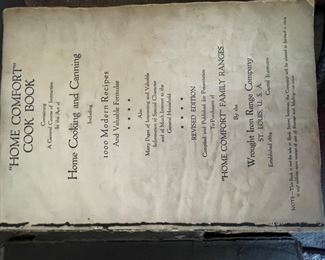 "HOME COMFORT"
COOK BOOK
Containing
A General Course of Instruction
In the Art of
Home Cooking and Canning
Including
1000 Modern Recipes
And Valuable Formulae
Also
Many Pages of Interesting and Valuable
Information of Special Character
and of Much Interest to the
Household
REVISED EDITION
Compiled and Published for Presentation
To Purchasers of
"HOME COMFORT" FAMILY RANGES
By the
Wrought Iron Range Company
ST. LOUIS, U. S. A.
Established 1864
NOTE—This Book is not for sale at Book Stores; however, the Company will be pleased to